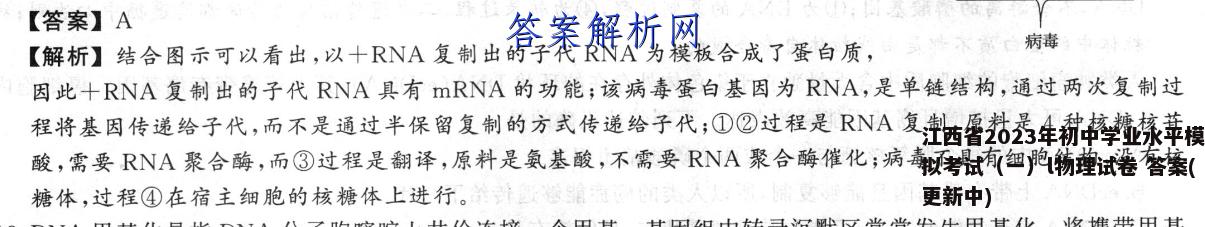 【答案】A
答案解析网
病毒
【解析】结合图示可以看出,以+RNA复制出的子代RNA为模板合成了蛋白质,
因此+RNA复制出的子代RNA具有mRNA的功能;该病毒蛋白基因为RNA,是单链结构,通过两次复制过
程将基因传递给子代,而不是通过半保留复制的方式传递给子代;①②过程是RNA复制,原料 种核糖核苷
酸,需要RNA聚合酶,而③过程是翻译,原料是氨基酸,不需要RNA聚合酶催化;病毒
糖体,过程④在宿主细胞的核糖体上进行。
江西省2023年初中学业水平模
拟考试（一）l物理试卷 答案(
更新中)